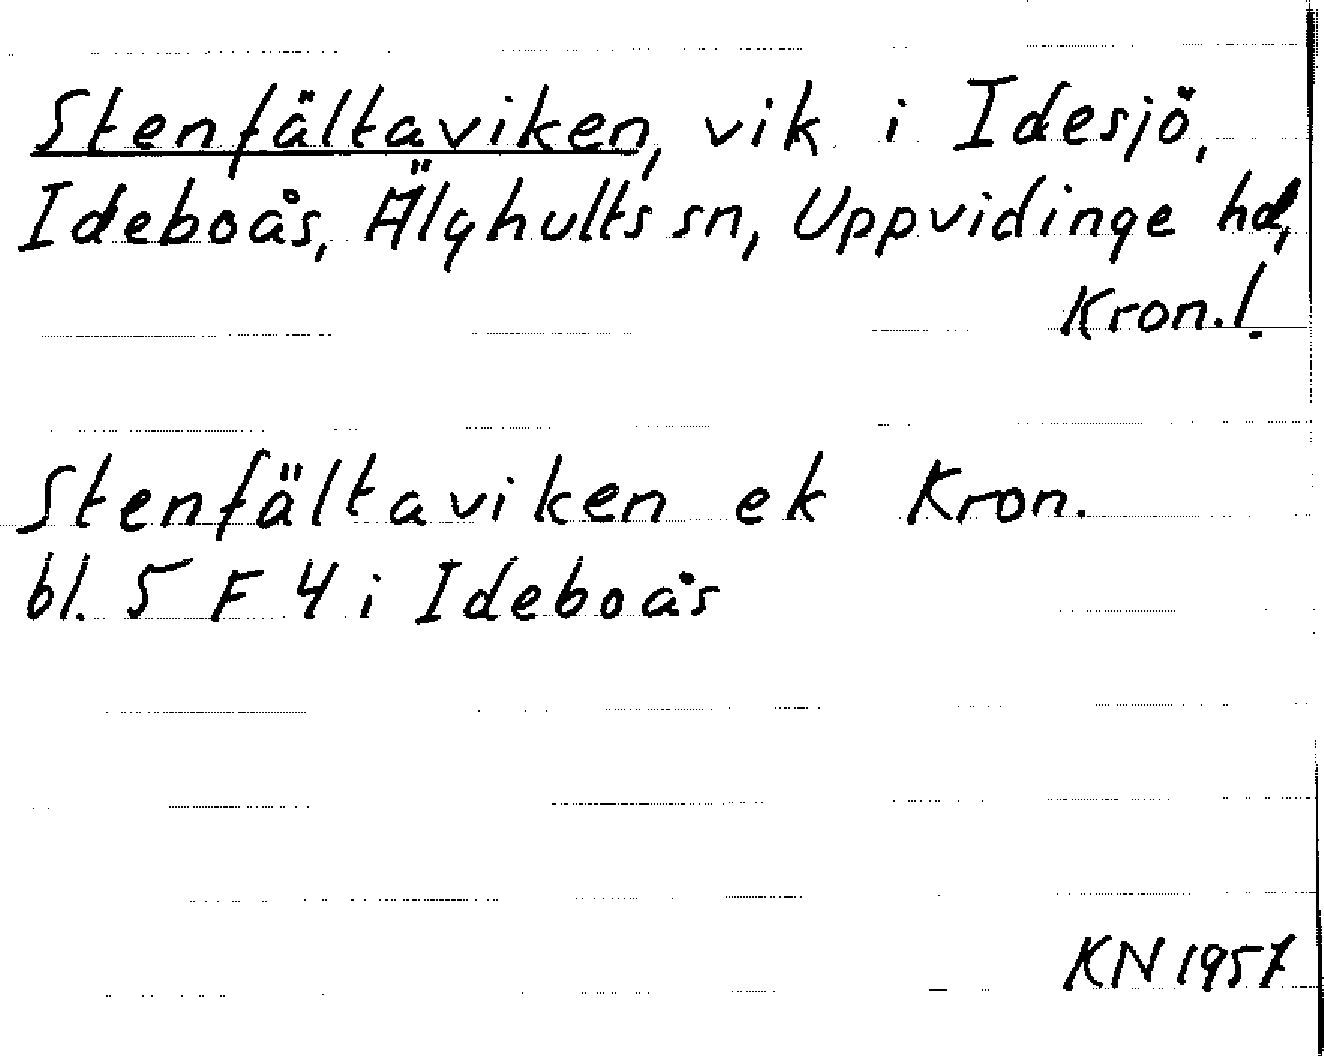 Stenfältaviken, vik i Idesjö,
Ideboås, Älghults sn, Uppvidinge hd,
Kron.l.
Stenfältaviken ek Kron.
bl. 5 F 4 i Ideboås
KN 1957